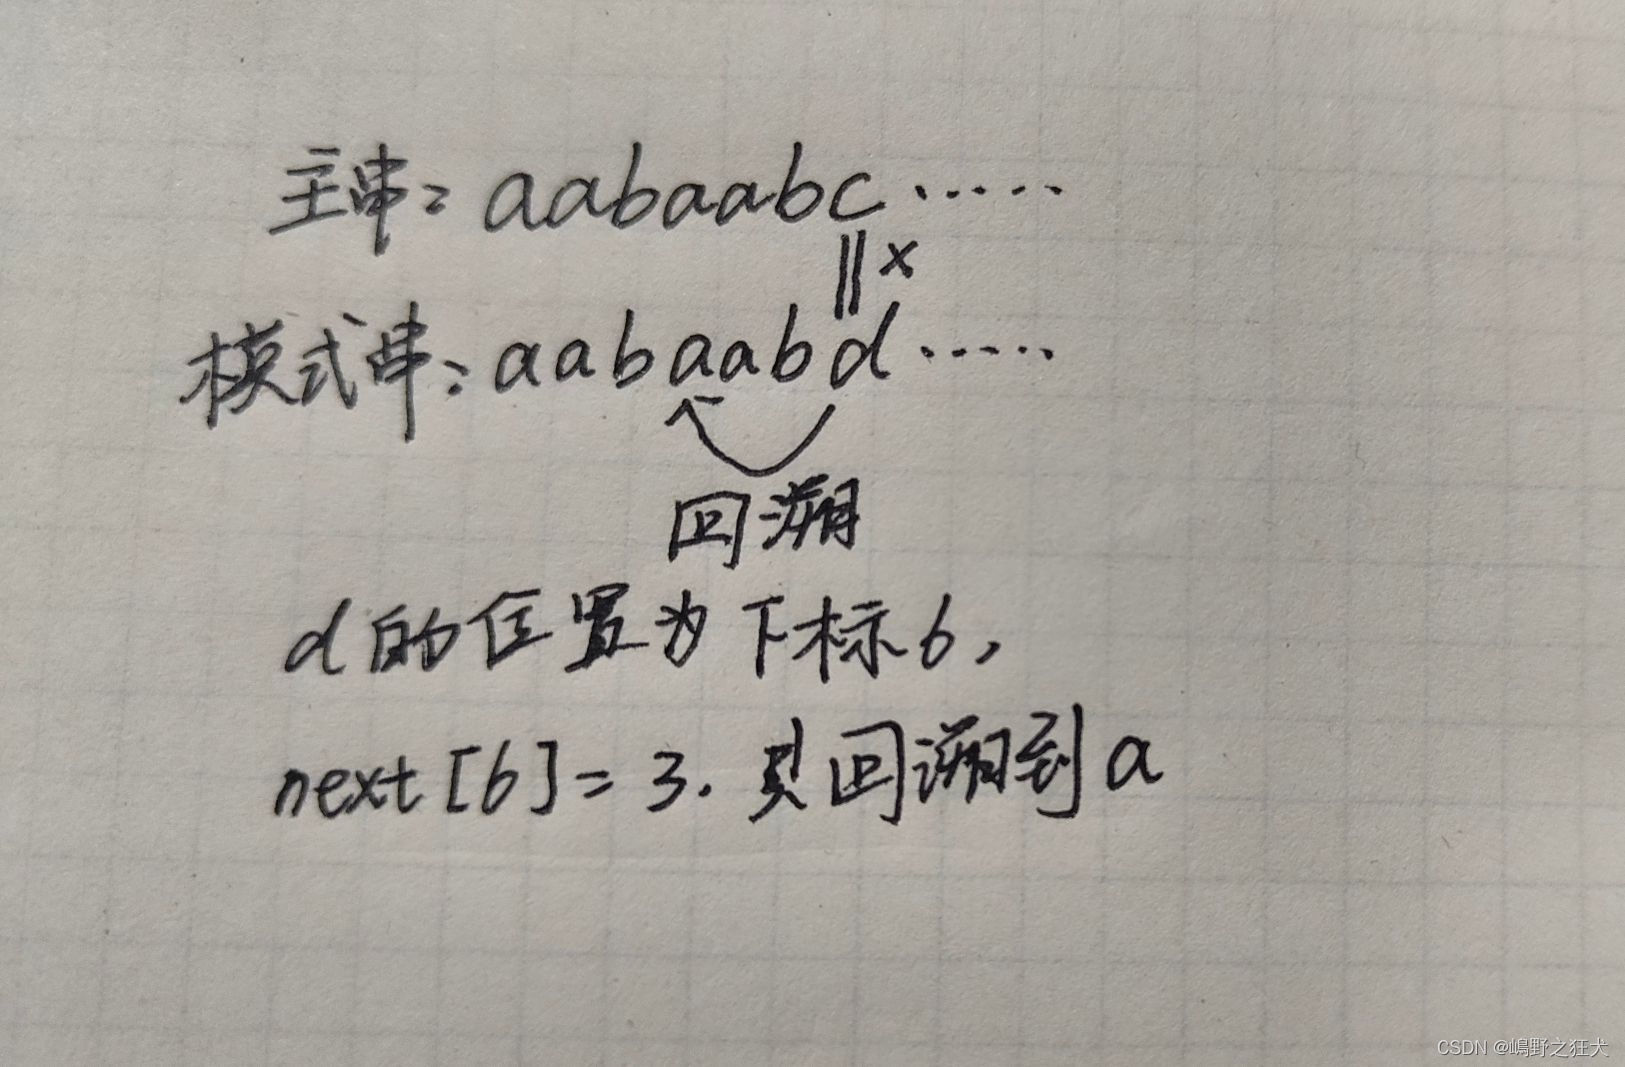 主串: aabaabc ······
× 
模式串: aabaabd ······
回溯
d的位置为下标6,
next[6]=3. 则回溯到a
CSDN @嶋野之狂犬